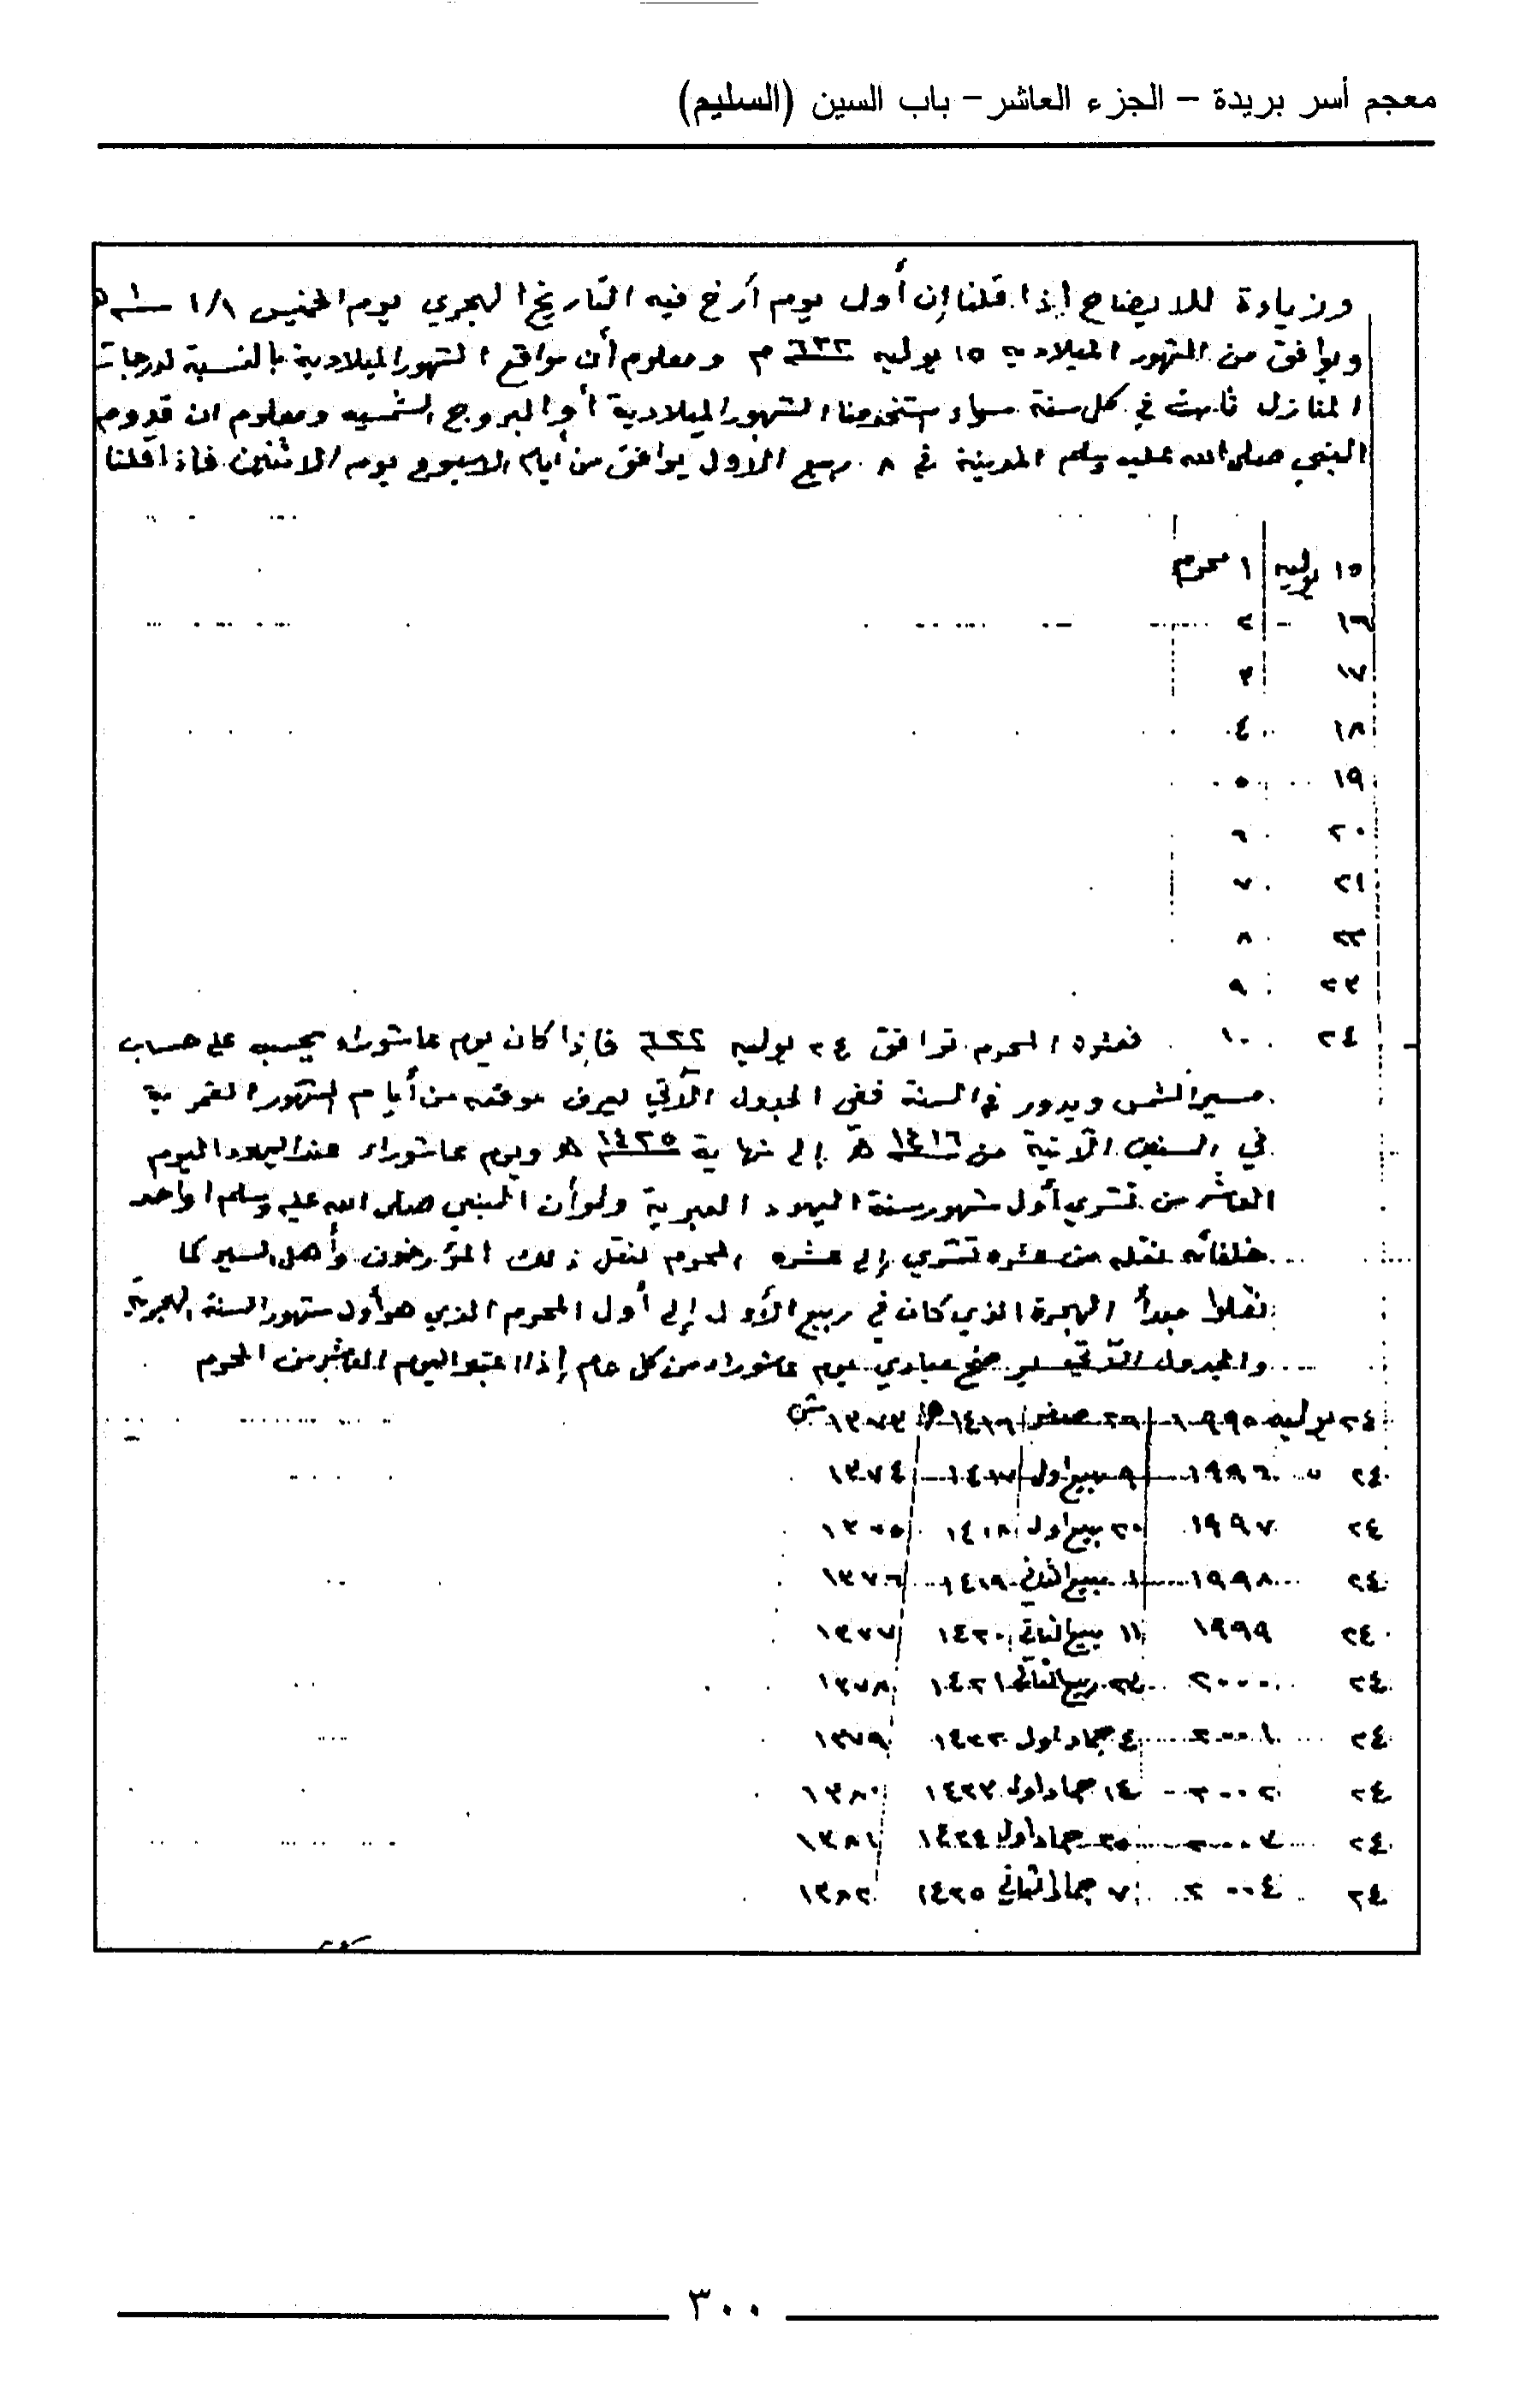 معجم أسر بريدة – الجزء العاشر – باب السين (السليم)
وزيادة للايضاح إذا قلنا إن أول يوم أرخ فيه التاريخ الهجري يوم الخميس ١/١ سنة ١ هـ
ويوافق من الشهور الميلادية ١٥ يوليه ٦٢٢ م ومعلوم أن مواقع الشهور الميلادية بالنسبة لدرجات
المنازل ثابت في كل سنة سواء استخدمنا الشهور الميلادية أو البروج الشمسية ومعلوم ان قدوم
النبي صلى الله عليه وسلم المدينة في ٨ ربيع الاول يوافق من أيام الاسبوع يوم الاثنين فاذا قلنا
١٥ يوليه ١ محرم
١٦ ٢
١٧ ٣
١٨ ٤
١٩ ٥
٢٠ ٦
٢١ ٧
٢٢ ٨
٢٣ ٩
٢٤ ١٠ فعشره المحرم توافق ٢٤ يوليه ٦٢٢ فإذا كان يوم عاشوراء يحسب على حساب
مسير الشمس ويدور في السنة ففي الجدول الآتي ليعرف موقعه من أيام الشهور القمرية
في السنين الآتية من ١٤١٦ هـ إلى نهاية ١٤٢٥ هـ ويوم عاشوراء عند اليهود اليوم
العاشر من تشري أول شهور سنة اليهود العبرية ولو أن النبي صلى الله عليه وسلم او احد
خلفائه نقله من عشره تشري إلى عشره المحرم لنقل ذلك المؤرخون وأهل السير كما
نقلوا مبدأ الهجرة الذي كان في ربيع الأول إلى أول المحرم الذي هو أول شهور السنة الهجرية
والجدول يوم عاشوراء من كل عام إذا اليوم العاشر من المحرم
٢٤ يوليه ١٩٩٥ ٢٦ صفر ١٤١٦ هـ ١٣٧٣ ش
٢٤ " ١٩٩٦ ٩ ربيع اول ١٤١٧ ١٣٧٤
٢٤ ١٩٩٧ ٢٠ ربيع اول ١٤١٨ ١٣٧٥
٢٤ ١٩٩٨ ١ ربيع الثاني ١٤١٩ ١٣٧٦
٢٤ ١٩٩٩ ١١ ربيع الثاني ١٤٢٠ ١٣٧٧
٢٤ ٢٠٠٠ ربيع الثاني ١٤٢١ ١٣٧٨
٢٤ ٢٠٠١ ٤ جماد اول ١٤٢٢ ١٣٧٩
٢٤ ٢٠٠٢ ١٤ جماد اول ١٤٢٣ ١٣٨٠
٢٤ ٢٠٠٣ ٢٥ جماد اول ١٤٢٤ ١٣٨١
٢٤ ٢٠٠٤ ٧ جماد الثاني ١٤٢٥ ١٣٨٢
٣٠٠